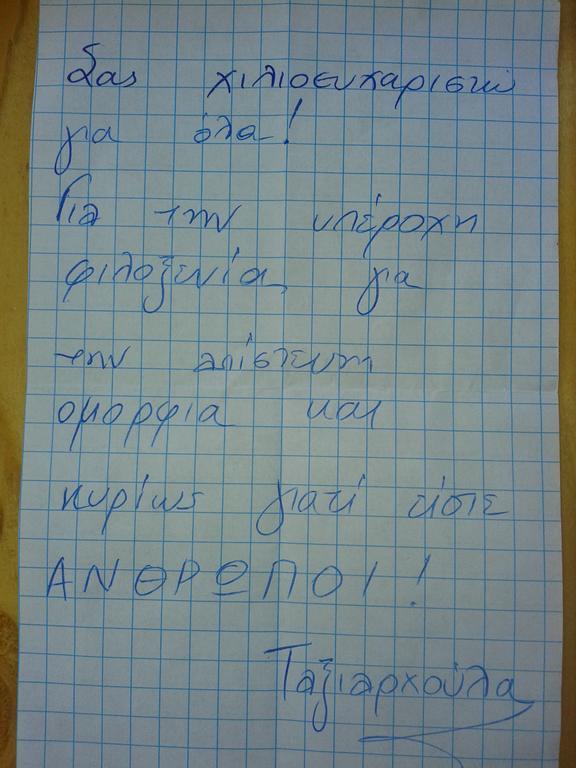 Σας χιλιοευχαριστώ
για όλα!
Για την υπέροχη
φιλοξενία, για
την απίστευτη
ομορφιά και
κυρίως γιατί είστε
ΑΝΘΡΩΠΟΙ!
Ταξιαρχούλα